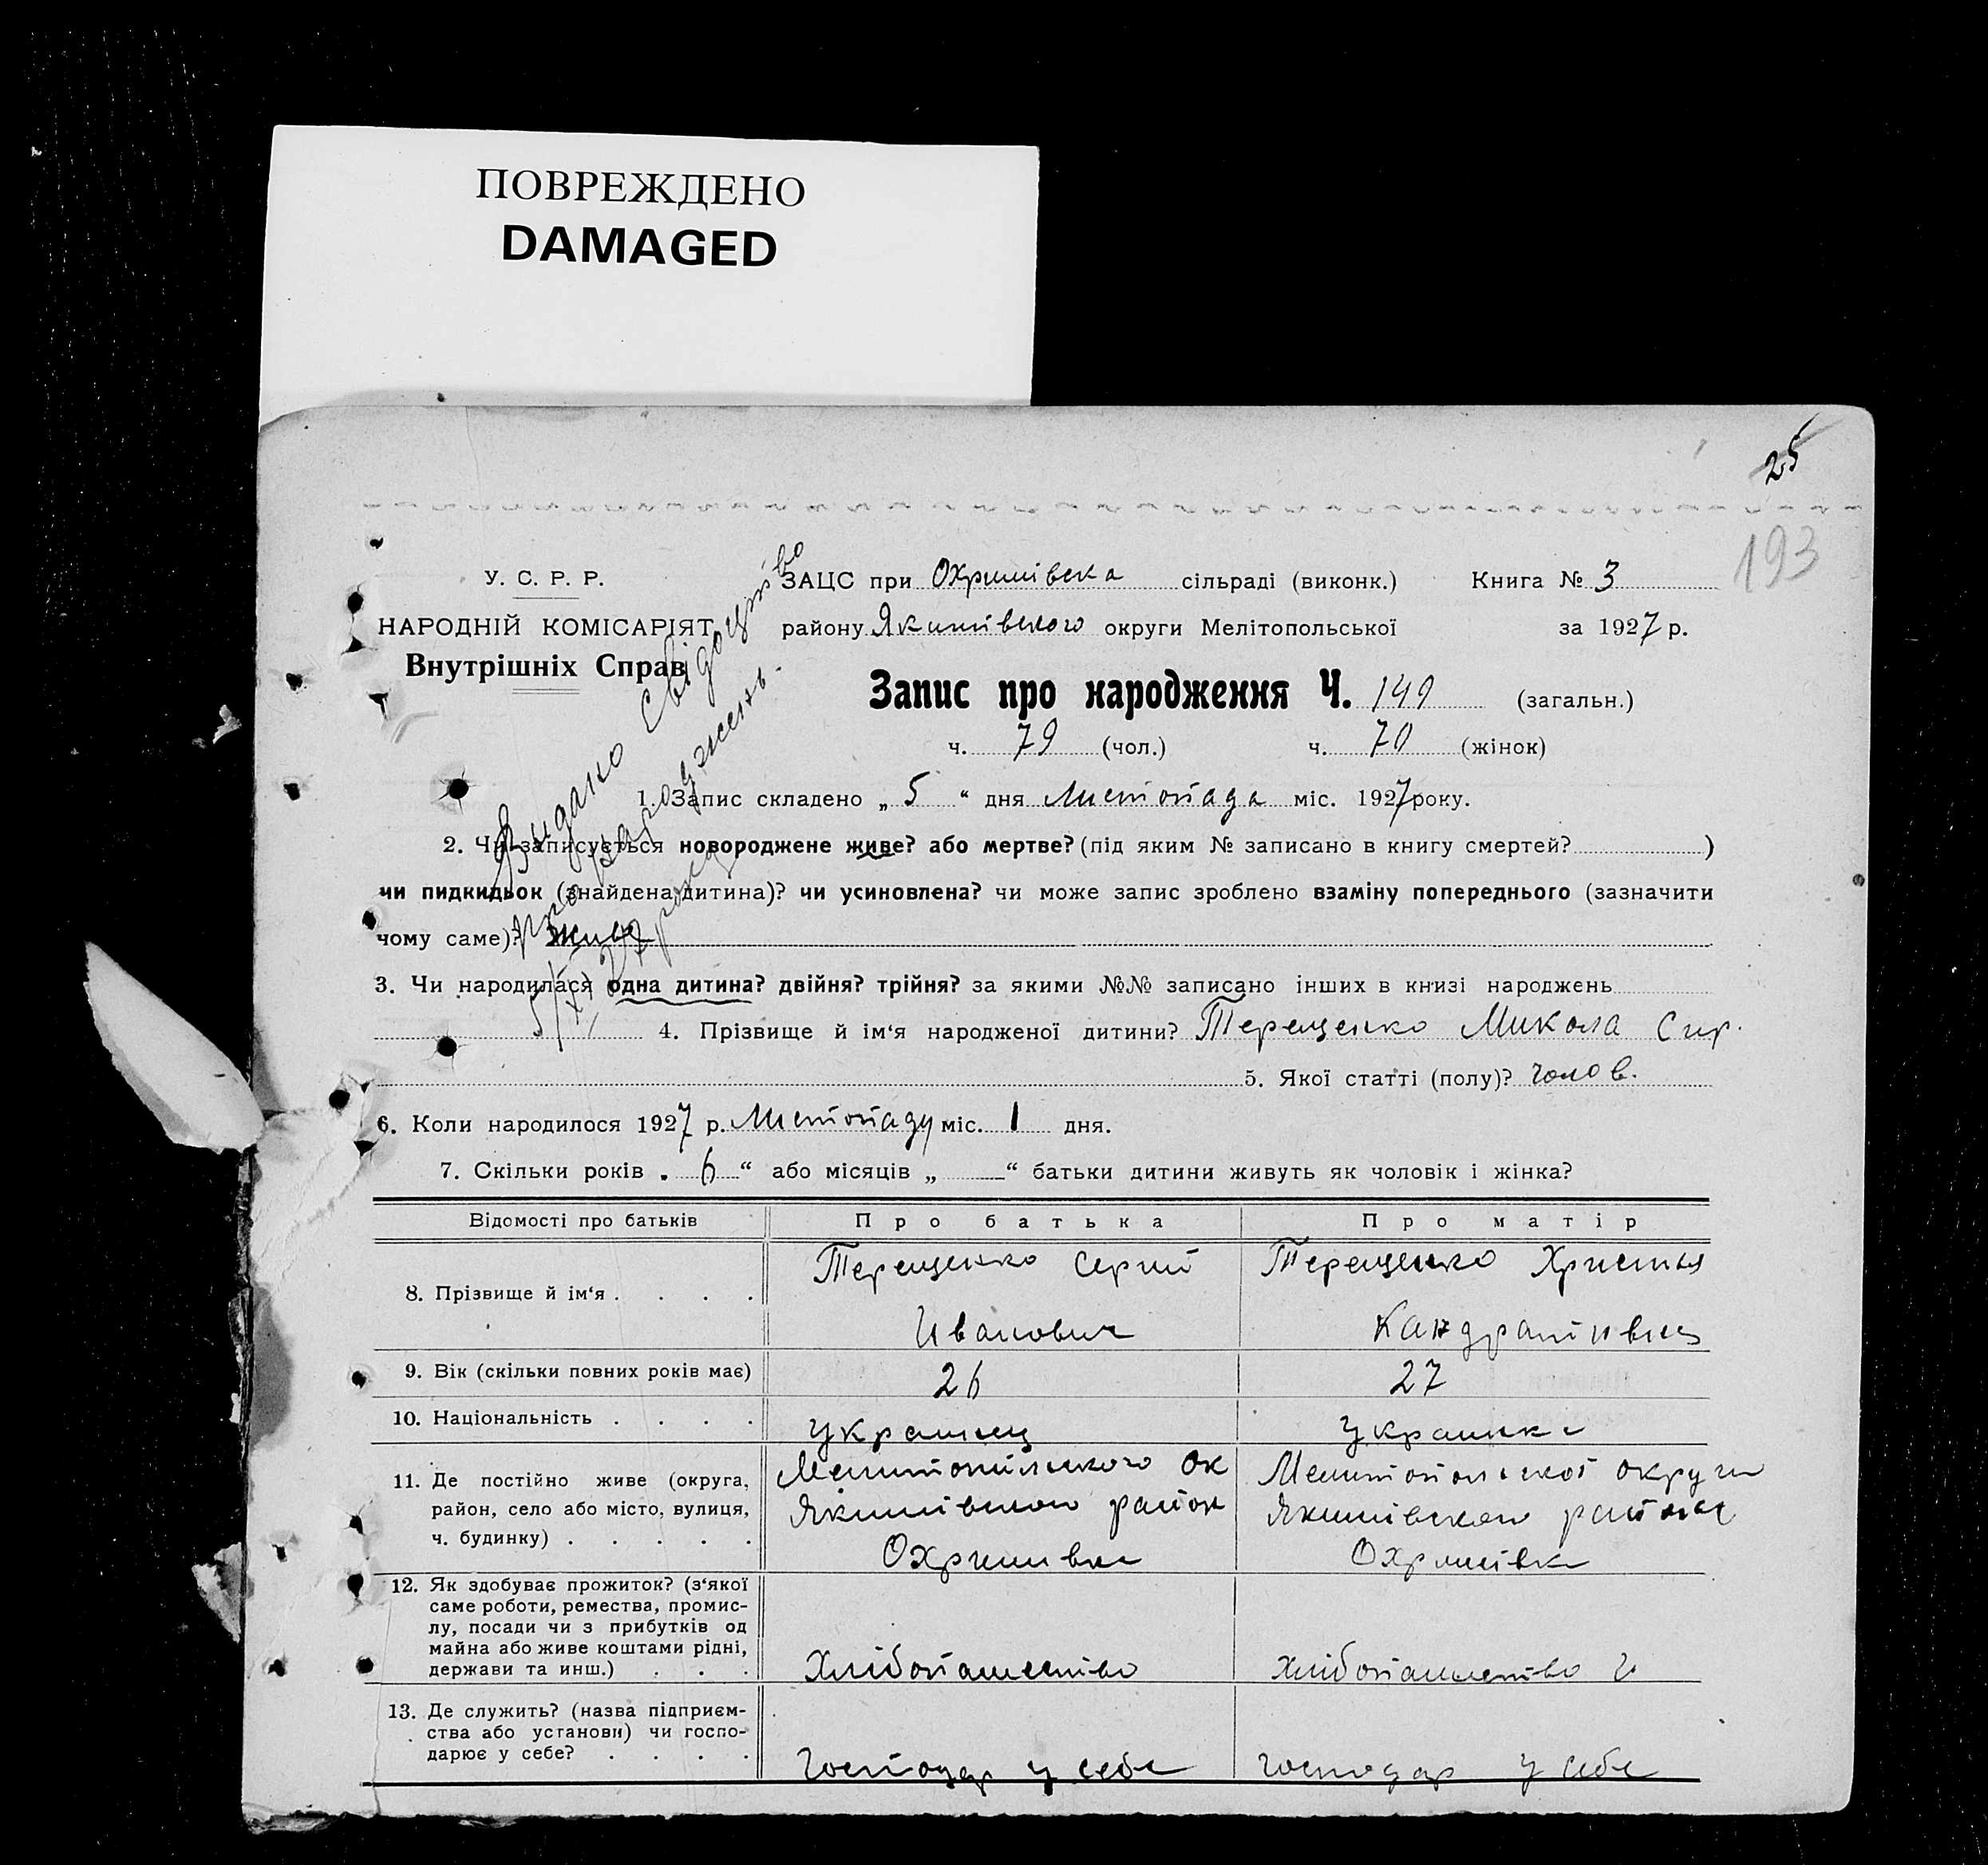 ПОВРЕЖДЕНО
DAMAGED
25
193
У. С. Р. Р.
НАРОДНІЙ КОМІСАРІЯТ
Внутрішніх Справ
ЗАЦС при Охримівска сільраді (виконк.) Книга № 3
району Якимівского округи Мелітопольської за 1927 р.
Запис про народження Ч. 149 (загальн.)
ч. 79 (чол.) ч. 70 (жінок)
Видано свідоцтво
про народжень.
5/XI 27 року
1. Запис складено „ 5 “ дня Листопада міс. 1927 року.
2. Чи записується новороджене живе? або мертве? (під яким № записано в книгу смертей? )
чи пидкидьок (знайдена дитина)? чи усиновлена? чи може запис зроблено взаміну попереднього (зазначити
чому саме)? живе
3. Чи народилася одна дитина? двійня? трійня? за якими №№ записано інших в книзі народжень
4. Прізвище й ім‘я народженої дитини? Терещенко Микола Сер.
5. Якої статті (полу)? чолов.
6. Коли народилося 1927 р. Листопаду міс. 1 дня.
7. Скільки років „ 6 “ або місяців „ “ батьки дитини живуть як чоловік і жінка?
Відомості про батьків Про батька Про матір
8. Прізвище й ім‘я . . . . Терещенко Сергий Терещенко Христья
Иванович Кандративна
9. Вік (скільки повних років має) 26 27
10. Національність . . . . Украинец Украинка
11. Де постійно живе (округа, Мелитопильского Ок Мелитопольскої округи
район, село або місто, вулиця, Якимівского район Якимівского района
ч. будинку) . . . . . Охримивка Охримівка
12. Як здобуває прожиток? (з‘якої
саме роботи, ремества, промис-
лу, посади чи з прибутків од
майна або живе коштами рідні,
держави та инш.) . . . Хлібопашество Хлібопашество
13. Де служить? (назва підприєм-
ства або установи) чи госпо-
дарює у себе? . . . . Господар у себе господар у себе